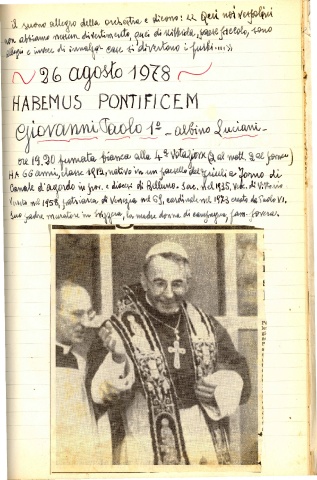 il suono allegro della orchestra e dicono: "Qui noi versolini
non abbiamo nessun divertimento, quei di Mittida, paese piccolo, sono
allegri e invece di innalzar case si divertono i furbi....."
~ 26 agosto 1978 ~
HABEMUS PONTIFICEM
Giovanni Paolo 1º - Albino Luciani -
ore 19,20 fumata bianca alla 4ª votazione (2 al matt. 2 al pomer.)
HA 66 anni, classe 1912, nativo in un paesello del Forno di
Canale d'agordo in prov. e diocesi di Belluno. Sac. nel 1935, Vesc. di Vittorio
Veneto nel 1958, patriarca di Venezia nel 69, cardinale nel 1973 creato da Paolo VI.
Suo padre muratore in Svizzera, la madre donna di campagna, fam. povera.